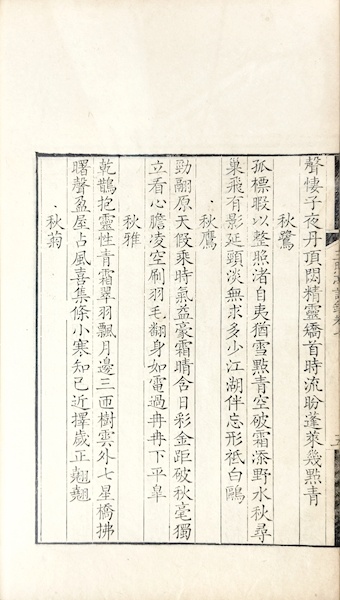 聲悽子夜丹頂閟精靈矯首時流盼蓬萊幾點青
秋鷺
孤標暇以整照渚自夷猶雪點青空破霜添野水秋尋
巢飛有影延頸淡無求多少江湖伴忘形祗白鷗
秋鷹
勁翮原天假乘時氣益豪霜晴含日彩金距破秋毫獨
立看心膽凌空刷羽毛翻身如電過冉冉下平皋
秋雅
乾鵲抱靈性青霜翠羽飄月邊三匝樹雲外七星橋拂
曙聲盈屋占風喜集條小寒知已近擇歲正翹翹
秋菊